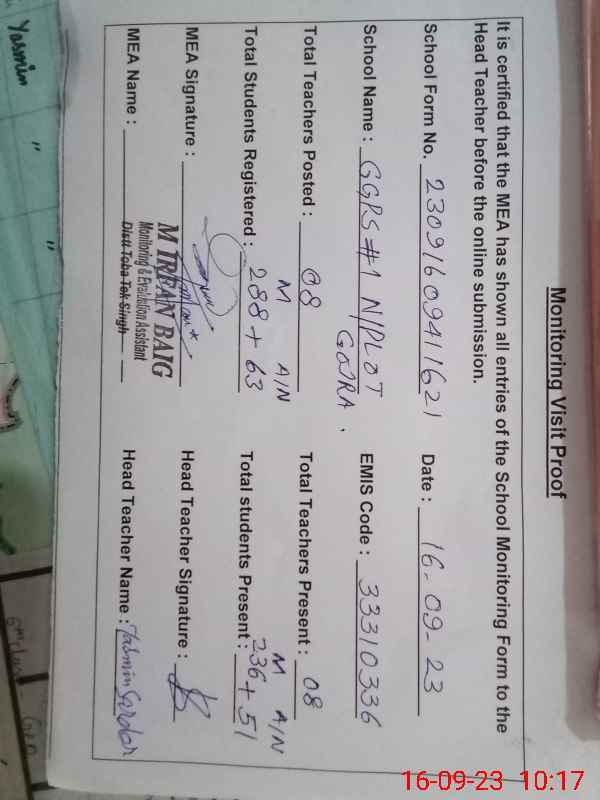 Monitoring Visit Proof
It is certified that the MEA has shown all entries of the School Monitoring Form to the
Head Teacher before the online submission.
School Form No. 23091609411621 Date : 16-09-23
School Name : GGPS #1 N/PLOT EMIS Code : 33310336
GOJRA.
Total Teachers Posted : 08 Total Teachers Present : 08
M A/N M A/N
Total Students Registered : 288 + 63 Total students Present : 236 + 51
MEA Signature : Head Teacher Signature :
M IRFAN BAIG
Monitoring & Evaluation Assistant
Distt Toba Tek Singh
MEA Name : Head Teacher Name : Yasmin Sardar
Yasmin
"
"
16-09-23 10:17